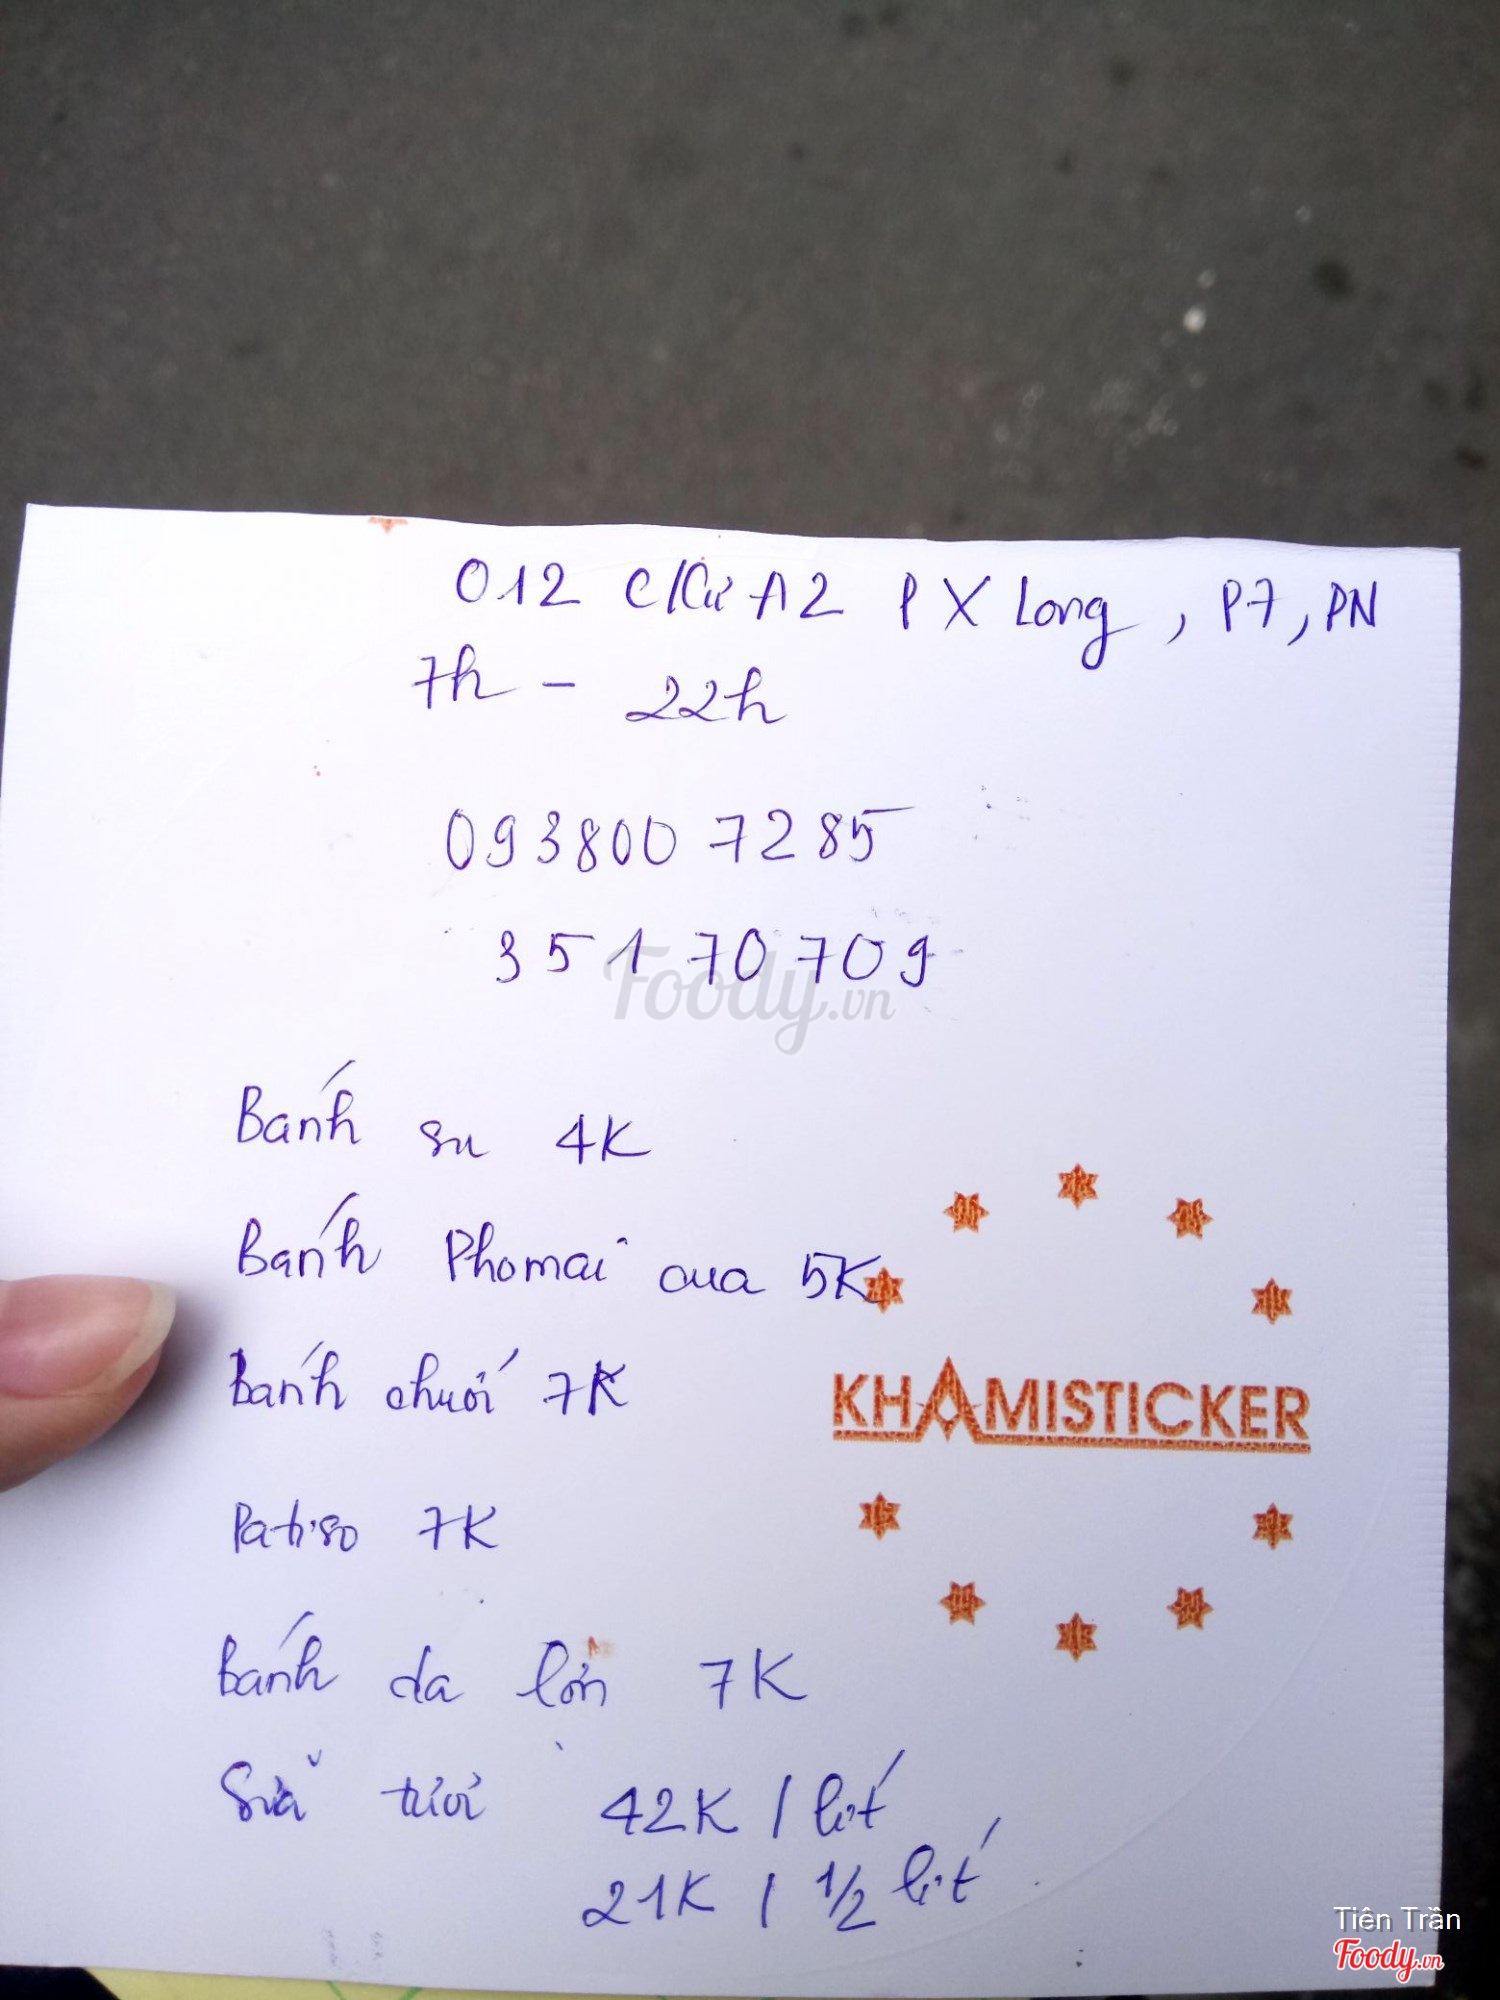 012 C/Cư A2 P X Long, P7, PN
7h - 22h
0938007285
35170709
Foody.vn
Bánh su 4K
Bánh Phomai cua 5K
Bánh chuối 7K
KHAMISTICKER
Patiso 7K
Bánh da lợn 7K
Sữa tươi 42K / lít
21K / 1/2 lít
Tiên Trần
Foody.vn